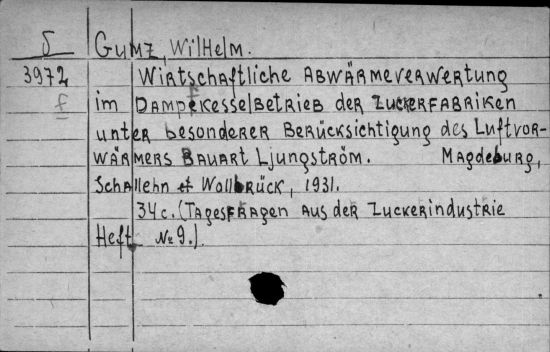 δ Gumz, Wilhelm.
3972 Wirtschaftliche Abwärmeverwertung
f im Dampfkesselbetrieb der Zuckerfabriken
unter besonderer Berücksichtigung des Luftvor-
wärmers Bauart Ljungström. Magdeburg,
Schallehn et Wollbrück, 1931.
34 c. (Tagesfragen aus der Zuckerindustrie
Heft № 9.)